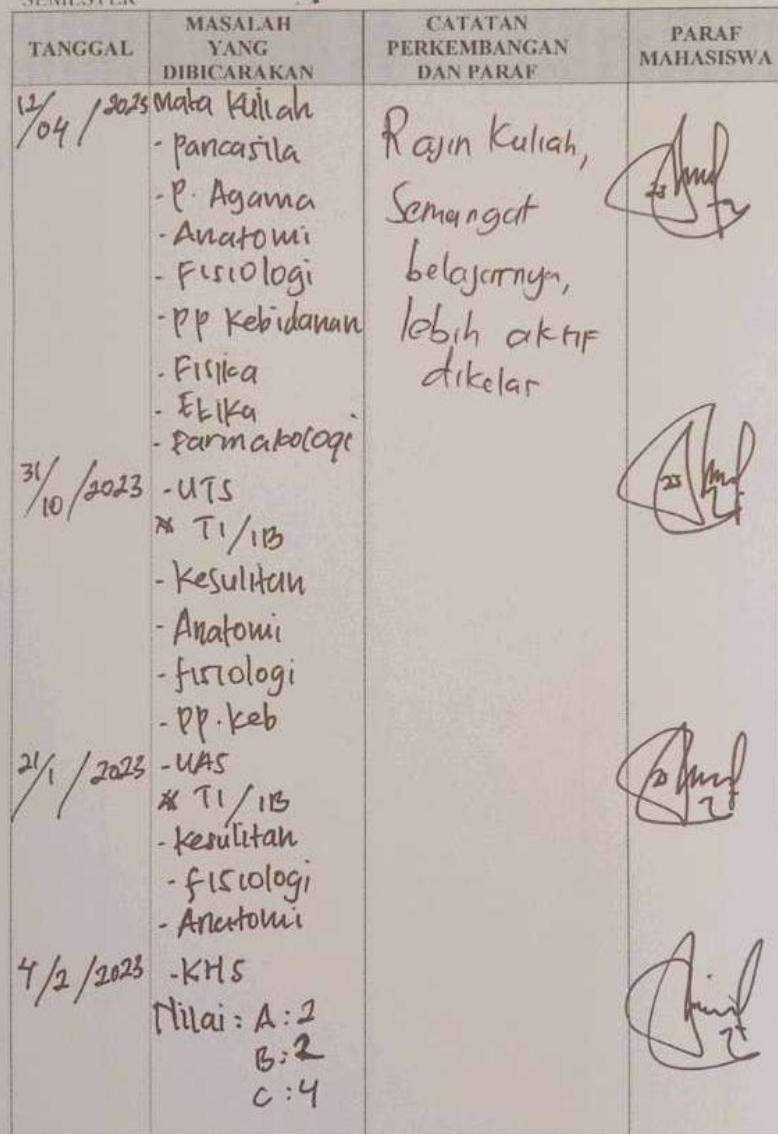 SEMESTER
TANGGAL
MASALAH
YANG
DIBICARAKAN
CATATAN
PERKEMBANGAN
DAN PARAF
PARAF
MAHASISWA
12/04/2023 Mata Kuliah
- Pancasila
- P. Agama
- Anatomi
- Fisiologi
- PP Kebidanan
- Fisika
- Etika
- Farmakologi
Rajin Kuliah,
Semangat
belajarnya,
lebih aktif
dikelas
31/10/2023 - UTS
* T1/1B
- Kesulitan
- Anatomi
- fisiologi
- PP. Keb
21/1/2023 - UAS
* T1/1B
- Kesulitan
- fisiologi
- Anatomi
4/2/2023 - KHS
Nilai: A:2
B:2
C:4